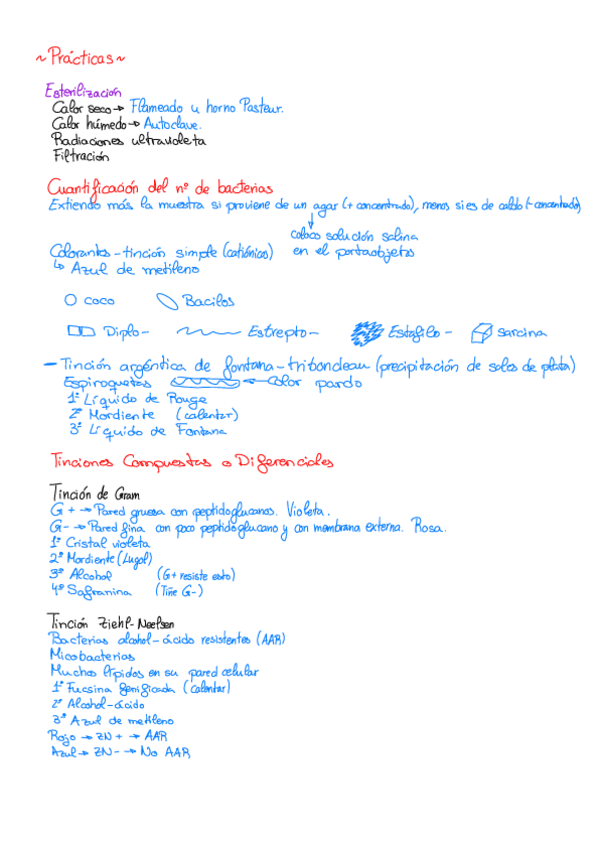 ~Prácticas~
Esterilización
Calor seco → Flameado u horno Pasteur.
Calor húmedo → Autoclave.
Radiaciones ultravioleta
Filtración
Cuantificación del nº de bacterias
Extiendo más la muestra si proviene de un agar (+ concentrado), menos si es de caldo (- concentrado)
coloco solución salina
en el portaobjetos
Colorantes - tinción simple (catiónicos)
↳ Azul de metileno
coco Bacilos
Diplo- Estrepto- Estafilo- sarcina
- Tinción argéntica de fontana-tribondeau (precipitación de sales de plata)
Espiroquetas ← Color pardo
1º Líquido de Rouge
2º Mordiente (calentar)
3º Líquido de Fontana
Tinciones Compuestas o Diferenciales
Tinción de Gram
G + → Pared gruesa con peptidoglucanos. Violeta.
G- → Pared fina con poco peptidoglucano y con membrana externa. Rosa.
1º Cristal violeta
2º Mordiente (Lugol)
3º Alcohol (G+ resiste esto)
4º Safranina (Tiñe G-)
Tinción Ziehl-Neelsen
Bacterias alcohol-ácido resistentes (AAR)
Micobacterias
Muchos lípidos en su pared celular
1º Fucsina fenificada (calentar)
2º Alcohol-ácido
3º Azul de metileno
Rojo → ZN + → AAR
Azul → ZN - → No AAR